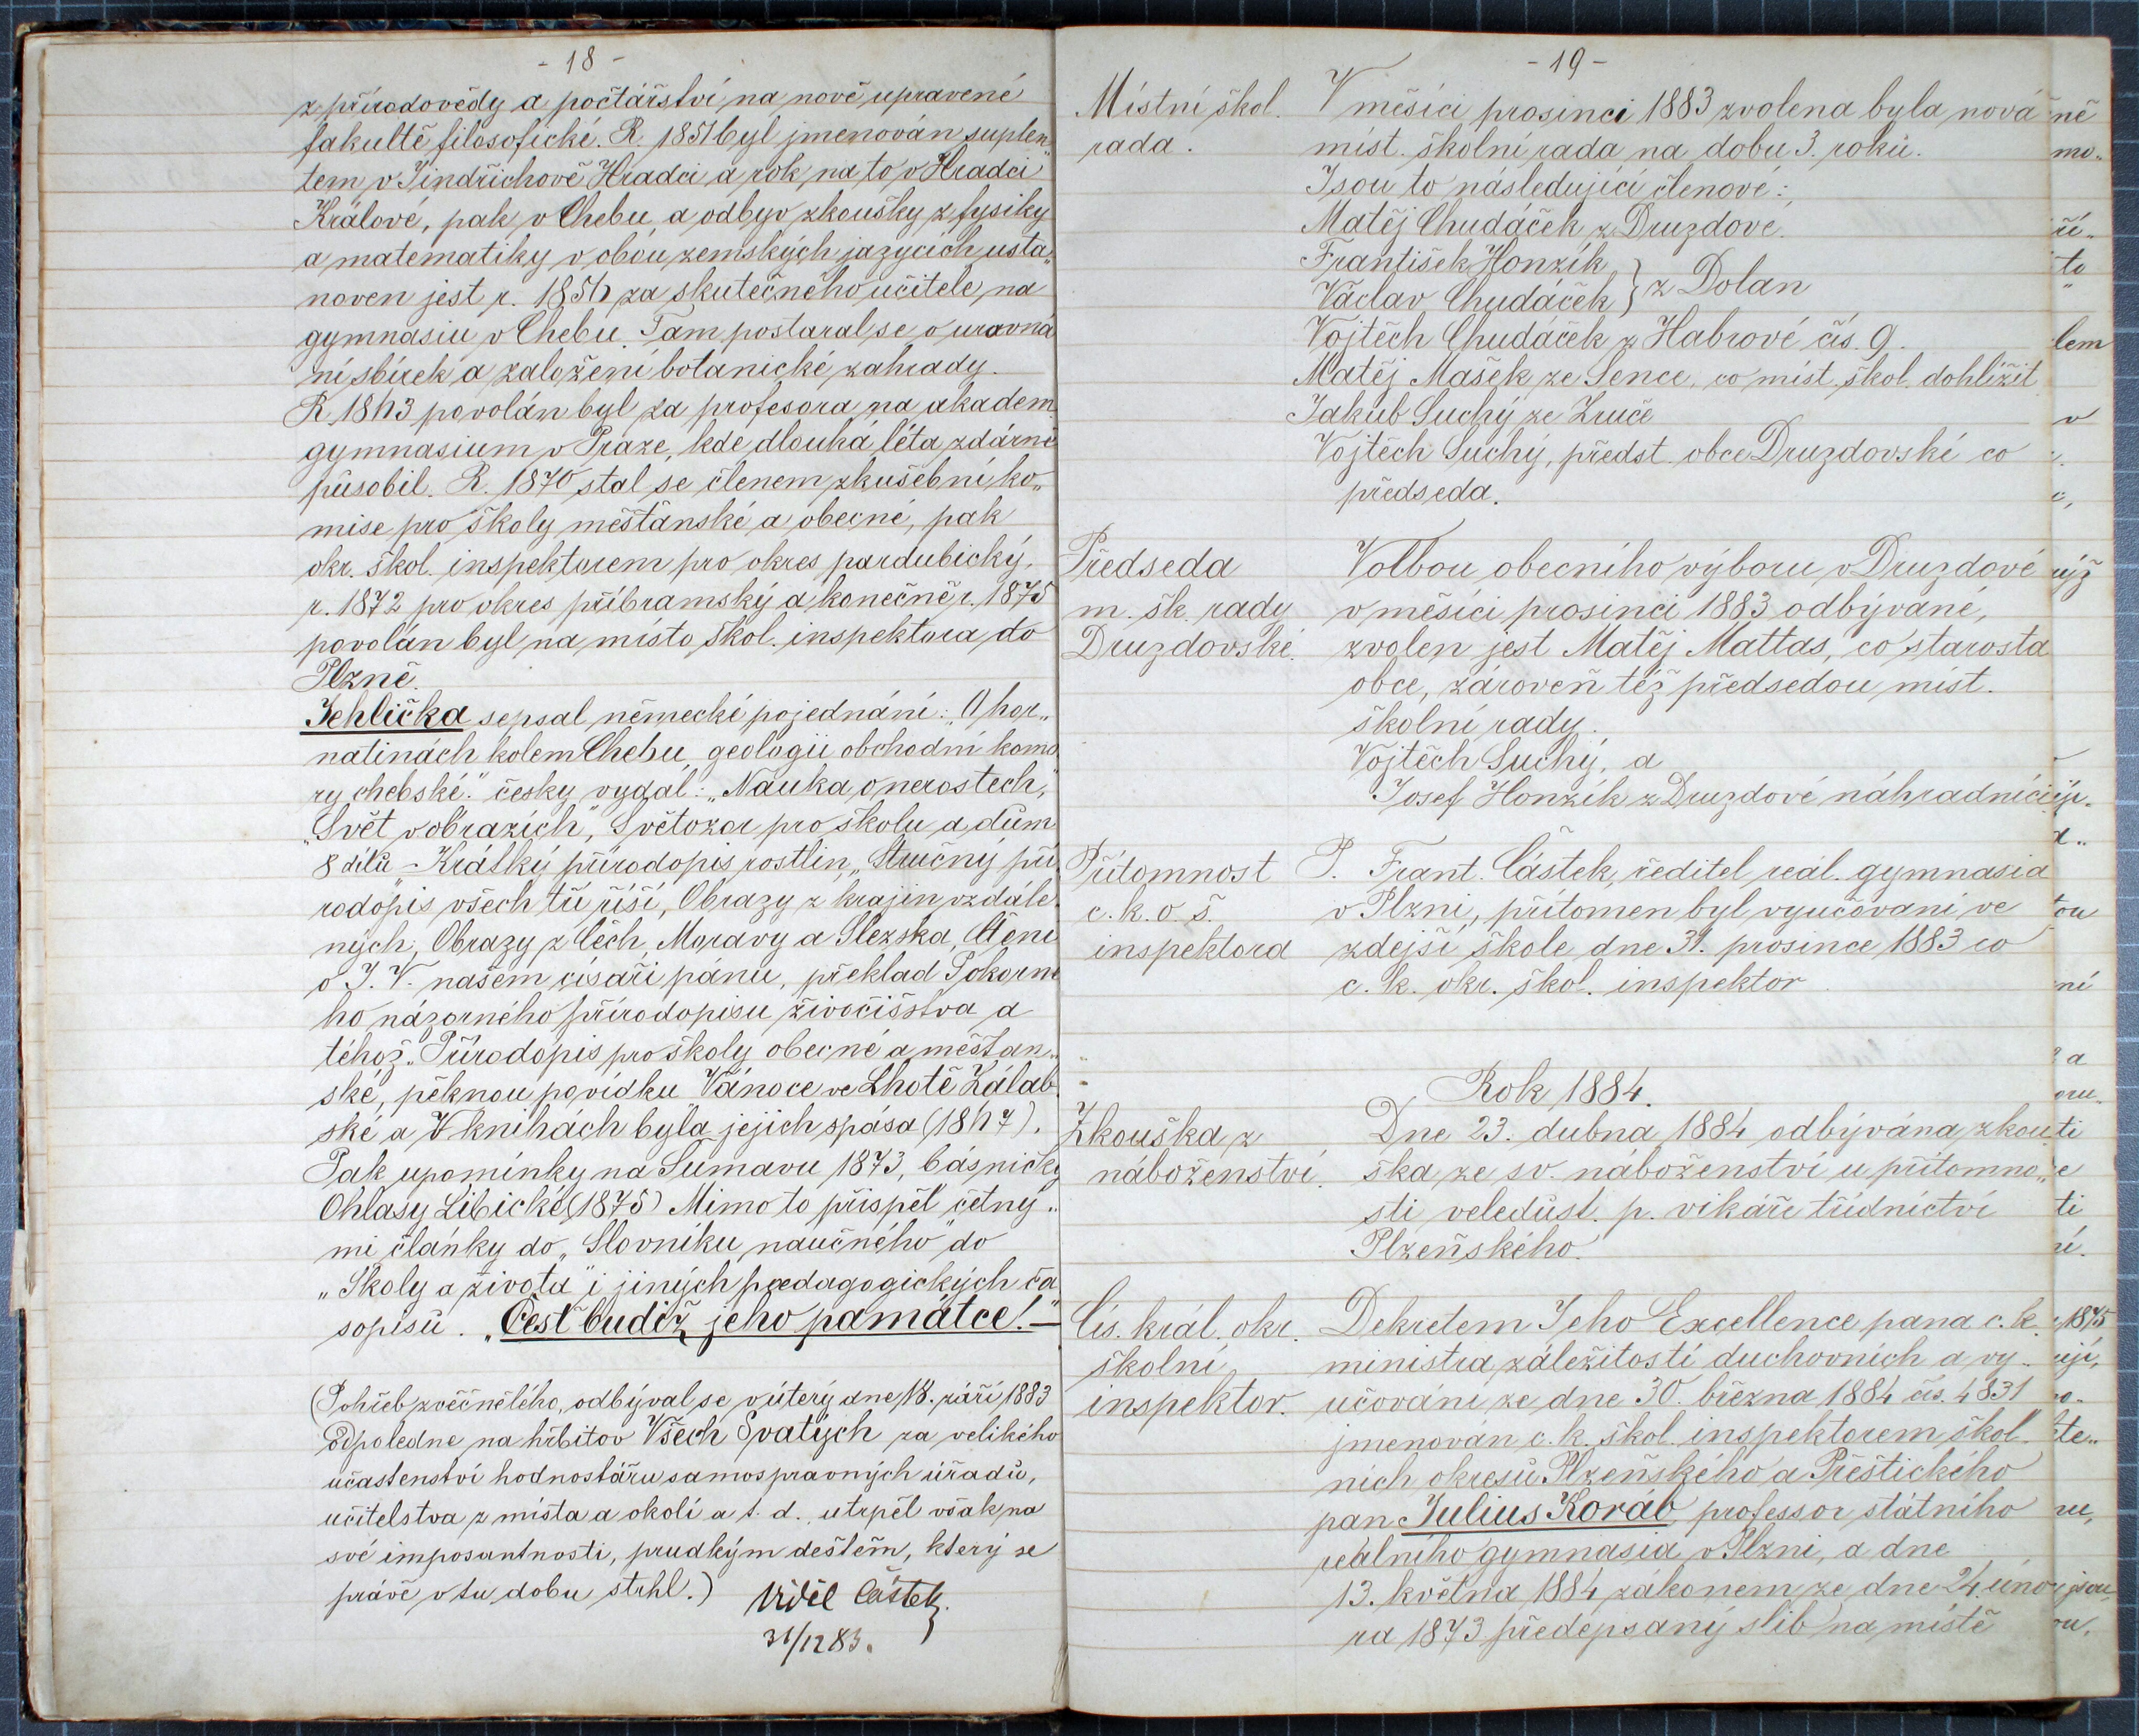 - 18 -
z přírodovědy a počtářství na nově upravené
fakultě filosofické. R. 1851 byl jmenován suplen„
tem v Jindřichově Hradci a rok na to v Hradci
Králové, pak v Chebu a odbyv zkoušky z fysiky
a matematiky v obou zemských jazycích usta„
noven jest r. 1856 za skutečného učitele na
gymnasiu v Chebu. Tam postaral se o urovná
ní sbírek a založení botanické zahrady.
R. 1863 povolán byl za profesora na akadem.
gymnasium v Praze, kde dlouhá léta zdárně
působil. R. 1870 stal se členem zkušební ko„
mise pro školy měšťanské a obecné, pak
okr. škol. inspektorem pro okres pardubický,
r. 1872 pro okres příbramský a konečně r. 1875
povolán byl na místo škol. inspektora do
Plzně.
Jehlička sepsal německé pojednání: „O hor„
natinách kolem Chebu, geologii obchodní komo
ry chebské." česky vydal: „Nauka o nerostech,"
„Svět v obrazích", Světozor pro školu a dům
8 dílů - Krátký přírodopis rostlin, „Stručný pří
rodopis všech tří říší, Obrazy z krajin vzdále
ných, Obrazy z Čech, Moravy a Slezska, Čtení
o J. V. našem císaři pánu, překlad Pokorné
ho názorného přírodopisu živočišstva a
téhož „Přírodopis pro školy obecné a měšťan„
ské, pěknou povídku Vánoce ve Lhotě Zálab
ské a V knihách byla jejich spása (1867).
Pak upomínky na Šumavu 1873, básničky
Ohlasy Libické (1875) Mimo to přispěl četný„
mi články do „Slovníku naučného" do
„Školy a života" i jiných paedagogických ča
sopisů. „Čest budiž jeho památce!" —
(Pohřeb zvěčnělého, odbýval se v úterý dne 18. září 1883
odpoledne na hřbitov Všech Svatých za velikého
účastenství hodnostářů samosprávných úřadů,
učitelstva z místa a okolí a t. d., utrpěl však na
své imposantnosti, prudkým deštěm, který se
právě v tu dobu strhl.)
Viděl Částek.
31/12 83.
- 19 -
Místní škol.
rada.
V měsíci prosinci 1883 zvolena byla nová
míst. školní rada na dobu 3. roků.
Jsou to následující členové:
Matěj Chudáček z Druzdové.
František Honzík
Václav Chudáček } z Dolan
Vojtěch Chudáček z Habrové čís. 9.
Matěj Mašek ze Sence, co míst. škol. dohlížit
Jakub Suchý ze Zruče
Vojtěch Suchý, předst. obce Druzdovské co
předseda.
Předseda
m. šk. rady
Druzdovské.
Volbou obecního výboru v Druzdové
v měsíci prosinci 1883 odbývané,
zvolen jest Matěj Mattas, co starosta
obce, zároveň též předsedou míst.
školní rady.
Vojtěch Suchý, a
Josef Honzík z Druzdové náhradníci
Přítomnost
c. k. o. š.
inspektora
P. Frant. Částek, ředitel reál. gymnasia
v Plzni, přítomen byl vyučování ve
zdejší škole dne 31. prosince 1883 co
c. k. okr. škol. inspektor.
Rok 1884.
Zkouška z
náboženství.
Dne 23. dubna 1884 odbývána zkou
ška ze sv. náboženství u přítomno„
sti veledůst. p. vikáře třídnictví
Plzeňského.
Cís. král. okr.
školní
inspektor.
Dekretem Jeho Excellence pana c. k.
ministra záležitostí duchovních a vy„
učování ze dne 30. března 1884 čís. 4831
jmenován c. k. škol. inspektorem škol„
ních okresů Plzeňského a Přeštického
pan Julius Koráb professor státního
reálního gymnasia v Plzni, a dne
13. května 1884 zákonem ze dne 24. úno
ra 1873 předepsaný slib na místě